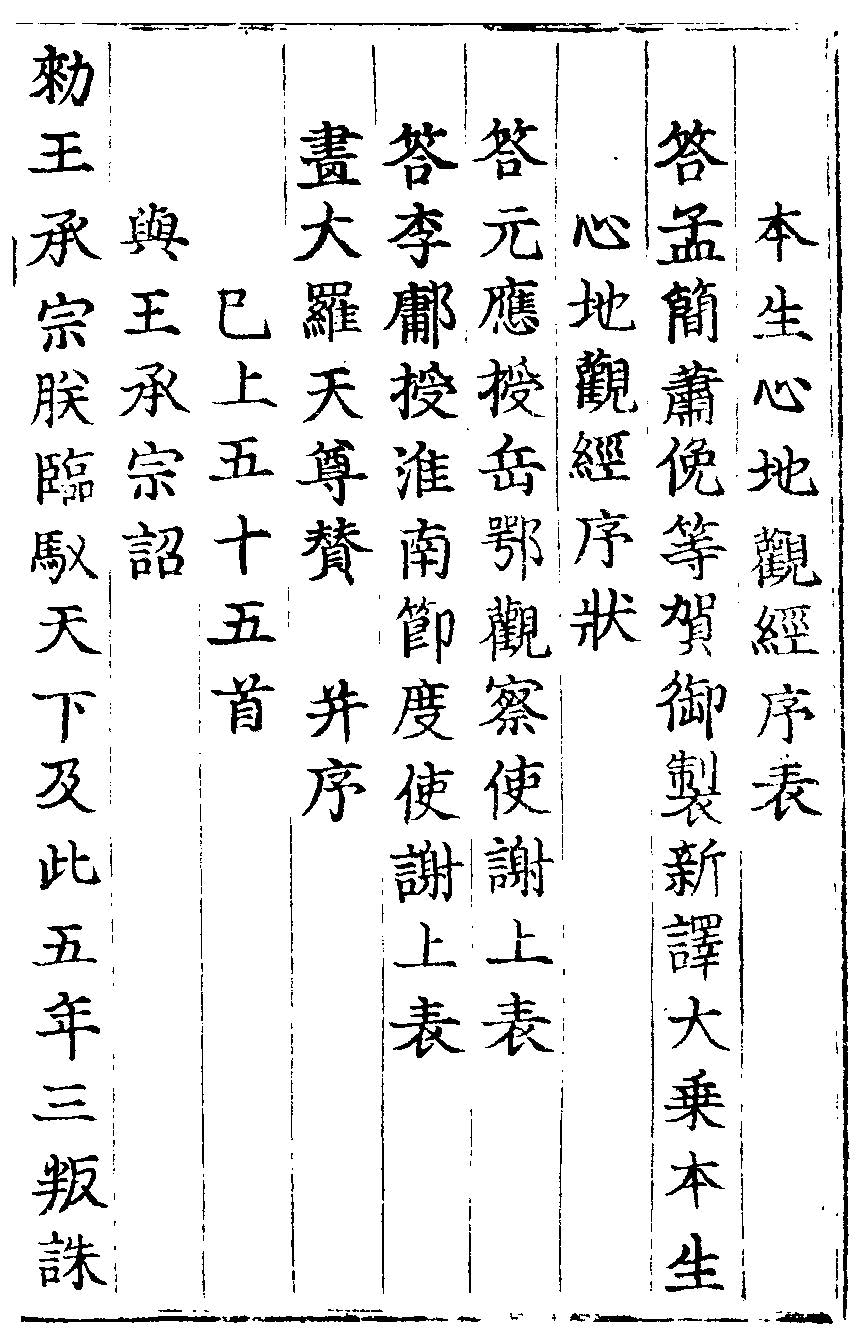 本生心地觀經序表
答孟簡蕭俛等賀御製新譯大乗本生
心地觀經序狀
答元應授岳鄂觀察使謝上表
答李鄘授淮南節度使謝上表
畫大羅天尊賛 并序
已上五十五首
與王承宗詔
勑王承宗朕臨馭天下及此五年三叛誅